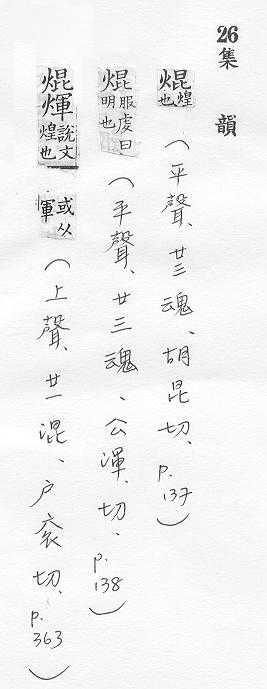 26
集韻
焜煌也（平聲、廿三魂、胡昆切、p.137）
焜服虔曰明也（平聲、廿三魂、公渾切、p.138）
焜煇說文煌也或从㫻（上聲、廿一混、戶袞切、p.363）